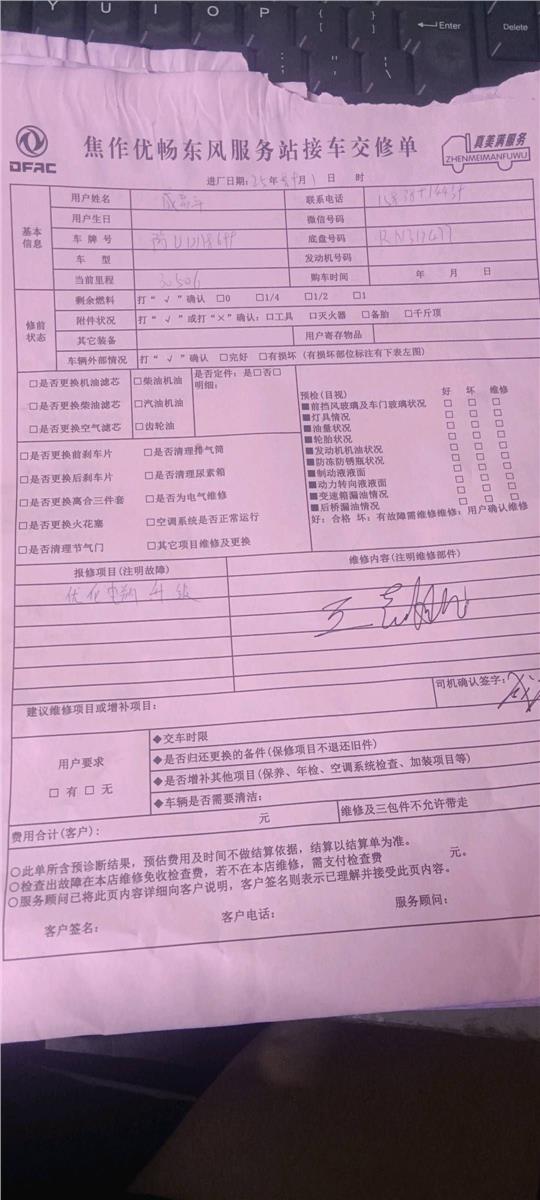 Y U I O P { [ } ] ←Enter Delete
: ; " ' | \
DFAC
焦作优畅东风服务站接车交修单
真美满服务
ZHENMEIMANFUWU
进厂日期：25年 月1日 时
基本信息
用户姓名 联系电话
用户生日 微信号码
车牌号 底盘号码
车 型 发动机号码
当前里程 30506 购车时间 年 月 日
修前状态
剩余燃料 打“√”确认 □0 □1/4 □1/2 □1
附件状况 打“√”或打“×”确认：□工具 □灭火器 □备胎 □千斤顶
其它装备 用户寄存物品
车辆外部情况 打“√”确认 □完好 □有损坏（有损坏部位标注有下表左图）
□是否更换机油滤芯 □柴油机油
□是否更换柴油滤芯 □汽油机油
□是否更换空气滤芯 □齿轮油
是否定件：是□否□
明细：
□是否更换前刹车片 □是否清理排气筒
□是否更换后刹车片 □是否清理尿素箱
□是否更换离合三件套 □是否为电气维修
□是否更换火花塞 □空调系统是否正常运行
□是否清理节气门 □其它项目维修及更换
预检(目视) 好 坏 维修
■前挡风玻璃及车门玻璃状况 □ □ □
■灯具情况 □ □ □
■油量状况 □ □ □
■轮胎状况 □ □ □
■发动机机油状况 □ □ □
■防冻防锈瓶状况 □ □ □
■制动液液面 □ □ □
■动力转向液液面 □ □ □
■变速箱漏油情况 □ □ □
■后桥漏油情况 □ □ □
好：合格 坏：有故障需维修维修：用户确认维修
报修项目(注明故障) 维修内容(注明维修部件)
升级
建议维修项目或增补项目：
司机确认签字：
用户要求
□ 有 □ 无
◆交车时限
◆是否归还更换的备件(保修项目不退还旧件)
◆是否增补其他项目(保养、年检、空调系统检查、加装项目等)
◆车辆是否需要清洁：
费用合计(客户)： 元 维修及三包件不允许带走
○此单所含预诊断结果，预估费用及时间不做结算依据，结算以结算单为准。
○检查出故障在本店维修免收检查费，若不在本店维修，需支付检查费 元。
○服务顾问已将此页内容详细向客户说明，客户签名则表示已理解并接受此页内容。
客户签名： 客户电话： 服务顾问：